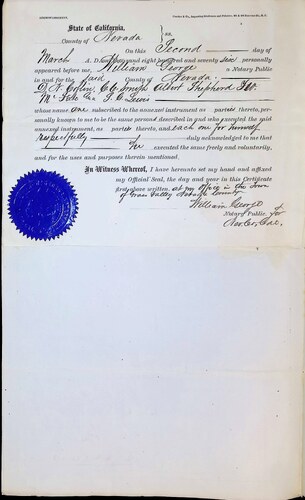 State of California,
County of Nevada } ss.
On this Second day of
March A. D. One thousand eight hundred and seventy six personally
appeared before me, William George a Notary Public
in and for the said County of Nevada
Colvin, C. C. Smith Albert Shepherd
J. C. Lewis
whose name are subscribed to the annexed instrument as parties thereto, per-
sonally known to me to be the same persons described in and who executed the said
annexed instrument, as parties thereto, and each one for himself
respectfully duly acknowledged to me that
he executed the same freely and voluntarily,
and for the uses and purposes therein mentioned.
In Witness Whereof, I have hereunto set my hand and affixed
my Official Seal, the day and year in this Certificate
first above written at my office in the Town
of Grass Valley Nevada County
William George
Notary Public for
Nev. Co. Cal.